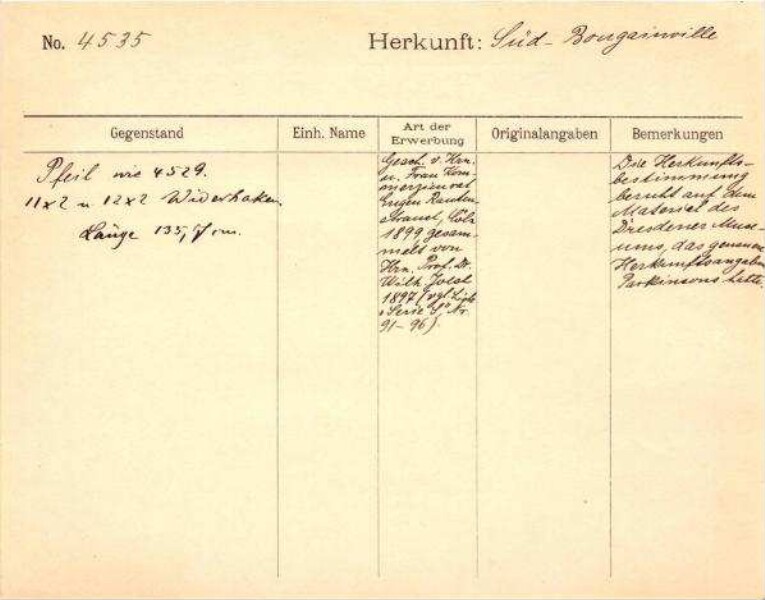 No. 4535
Herkunft: Süd-Bougainville
Gegenstand
Einh. Name
Art der
Erwerbung
Originalangaben
Bemerkungen
Pfeil wie 4529.
11x2 u 12x2 Widerhaken.
Länge 135,7 cm.
Gesch. v. Hrn.
u. Frau Kom-
merzienrat
Eugen Rauten-
strauch, Cöln
1899 gesam-
melt von
Hrn. Prof. Dr.
Wilh. Joest
1897 (vgl
Serie S, Nr.
91-96).
Die Herkunfts-
bestimmung
beruht auf dem
Material des
Dresdener Muse-
ums, das genauere
Herkunftsangaben
Parkinsons hatte.